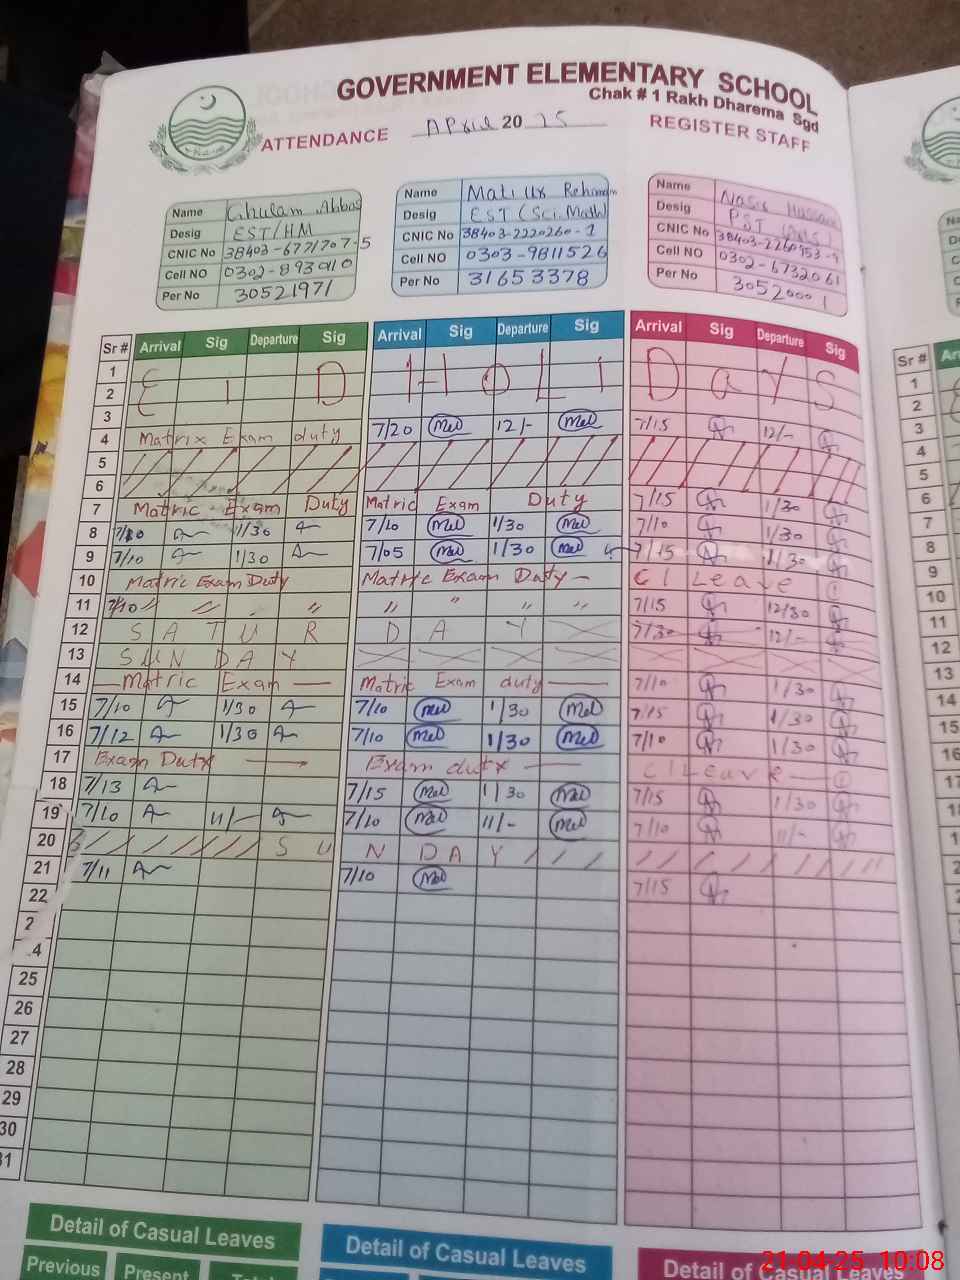 GOVERNMENT ELEMENTARY SCHOOL
Chak # 1 Rakh Dharema Sgd
ATTENDANCE April 20 25 REGISTER STAFF
Name Ghulam Abbas
Desig EST/HM
CNIC No 38403-6771707-5
Cell NO
Per No 30521971
Name Mati ur Rehman
Desig EST (Sci.Math)
CNIC No 38403-2220260-1
Cell NO 0303-9811526
Per No 31653378
Name Nasir Hussain
Desig PST
CNIC No
Cell NO 0302-6732061
Per No 30520001
Sr # Arrival Sig Departure Sig Arrival Sig Departure Sig Arrival Sig Departure Sig
1 E i D H o L i D a Y S
2
3 7/20 Mel 12/- Mel 7/15 12/-
4 Matrix Exam duty
5
6
7 Matric Exam Duty Matric Exam Duty 7/15 1/30
8 7/10 1/30 7/10 Mel 1/30 Mel 7/10 1/30
9 7/10 1/30 7/05 Mel 1/30 Mel 7/15 1/30
10 Matric Exam Duty Matric Exam Duty - C l Leave 1
11 7/10 〃 〃 〃 〃 〃 〃 〃 7/15 12/30
12 S A T U R D A Y 7/30 12/-
13 S U N D A Y
14 Matric Exam Matric Exam duty 7/10 1/30
15 7/10 1/30 7/10 Mel 1/30 Mel 7/15 1/30
16 7/12 1/30 7/10 Mel 1/30 Mel 7/10 1/30
17 Exam Duty Exam duty C l Leave
18 7/13 7/15 Mel 1/30 Mel 7/15 1/30
19 7/10 11/- 7/10 Mel 11/- Mel 7/10 11/-
20 S U N D A Y
21 7/11 7/10 Mel 7/15
22
2
.4
25
26
27
28
29
30
31
Detail of Casual Leaves Detail of Casual Leaves Detail of Casual Leaves
Previous Present
21-04-25 10:08
Sr #
1
2
3
4
5
6
7
8
9
10
11
12
13
14
15
16
17
18